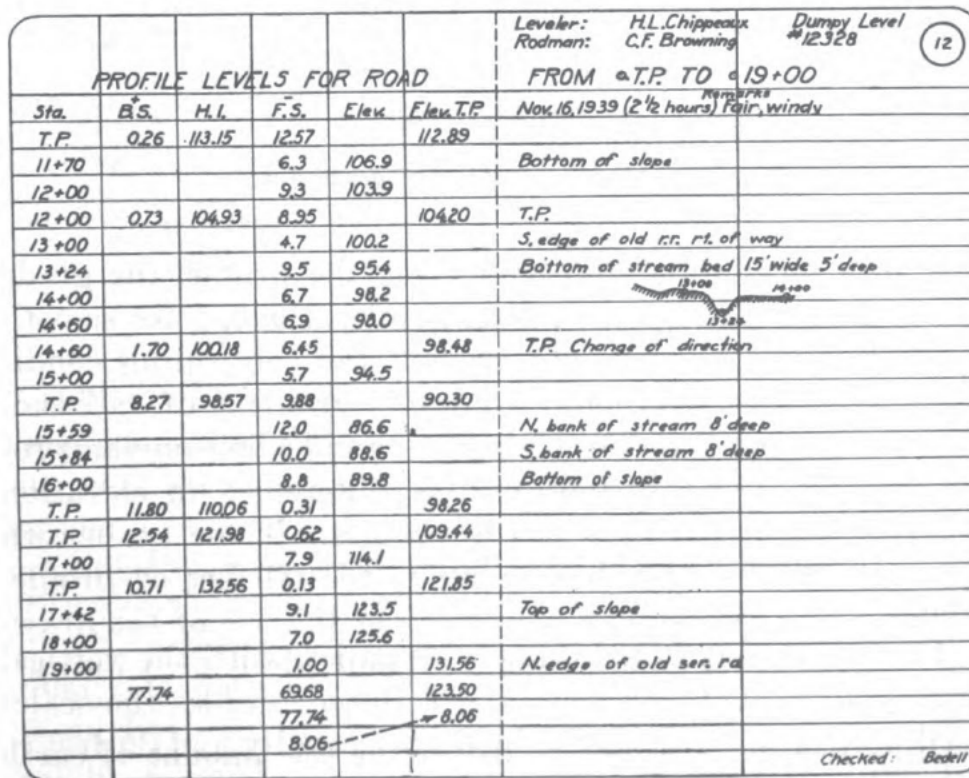 Leveler: H.L.Chippeaux Dumpy Level
Rodman: C.F. Browning #12328 12
PROFILE LEVELS FOR ROAD FROM T.P. TO 19+00
+ - Remarks
Sta. B.S. H.I. F.S. Elev. Elev. T.P. Nov. 16, 1939 (2 1/2 hours) Fair, windy
T.P. 0.26 113.15 12.57 112.89
11+70 6.3 106.9 Bottom of slope
12+00 9.3 103.9
12+00 0.73 104.93 8.95 104.20 T.P.
13+00 4.7 100.2 S. edge of old r.r. rt. of way
13+24 9.5 95.4 Bottom of stream bed 15' wide 5' deep
14+00 6.7 98.2 13+00 14+00
14+60 6.9 98.0 13+24
14+60 1.70 100.18 6.45 98.48 T.P. Change of direction
15+00 5.7 94.5
T.P. 8.27 98.57 9.88 90.30
15+59 12.0 86.6 N. bank of stream 8' deep
15+84 10.0 88.6 S. bank of stream 8' deep
16+00 8.8 89.8 Bottom of slope
T.P. 11.80 110.06 0.31 98.26
T.P. 12.54 121.98 0.62 109.44
17+00 7.9 114.1
T.P. 10.71 132.56 0.13 121.85
17+42 9.1 123.5 Top of slope
18+00 7.0 125.6
19+00 1.00 131.56 N. edge of old ser. rd
77.74 69.68 123.50
77.74 8.06
8.06
Checked: Bedell